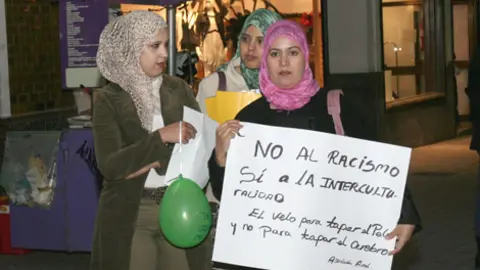 NO AL RACISMO
SÍ A LA INTERCULTU-
RALIDAD
EL VELO PARA TAPAR EL PELO
Y NO PARA TAPAR EL CEREBRO